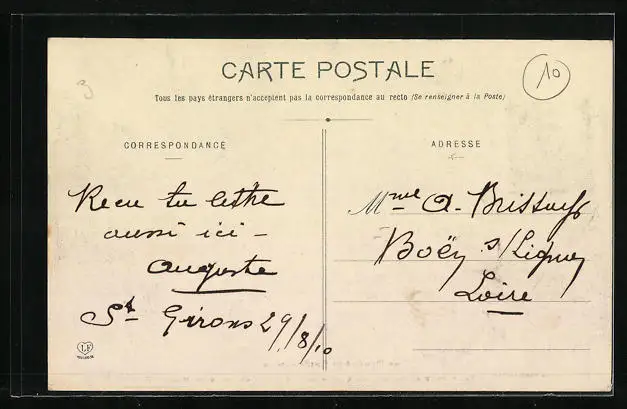 3
CARTE POSTALE
10
Tous les pays étrangers n'acceptent pas la correspondance au recto (Se renseigner à la Poste)
CORRESPONDANCE
Recu tu lettre
aussi ici -
Auguste
St Girons 29/8/10
LF
ADRESSE
Mme A.
Boën s/Lignon
Loire